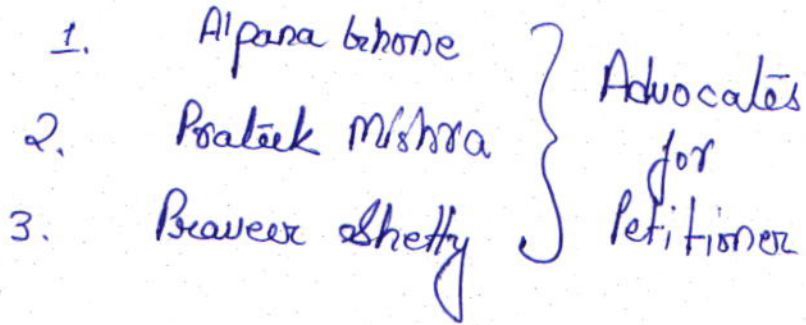 1. Alpana Ghone
2. Prateek Mishra
3. Praveer Shetty
Advocates
for
Petitioner